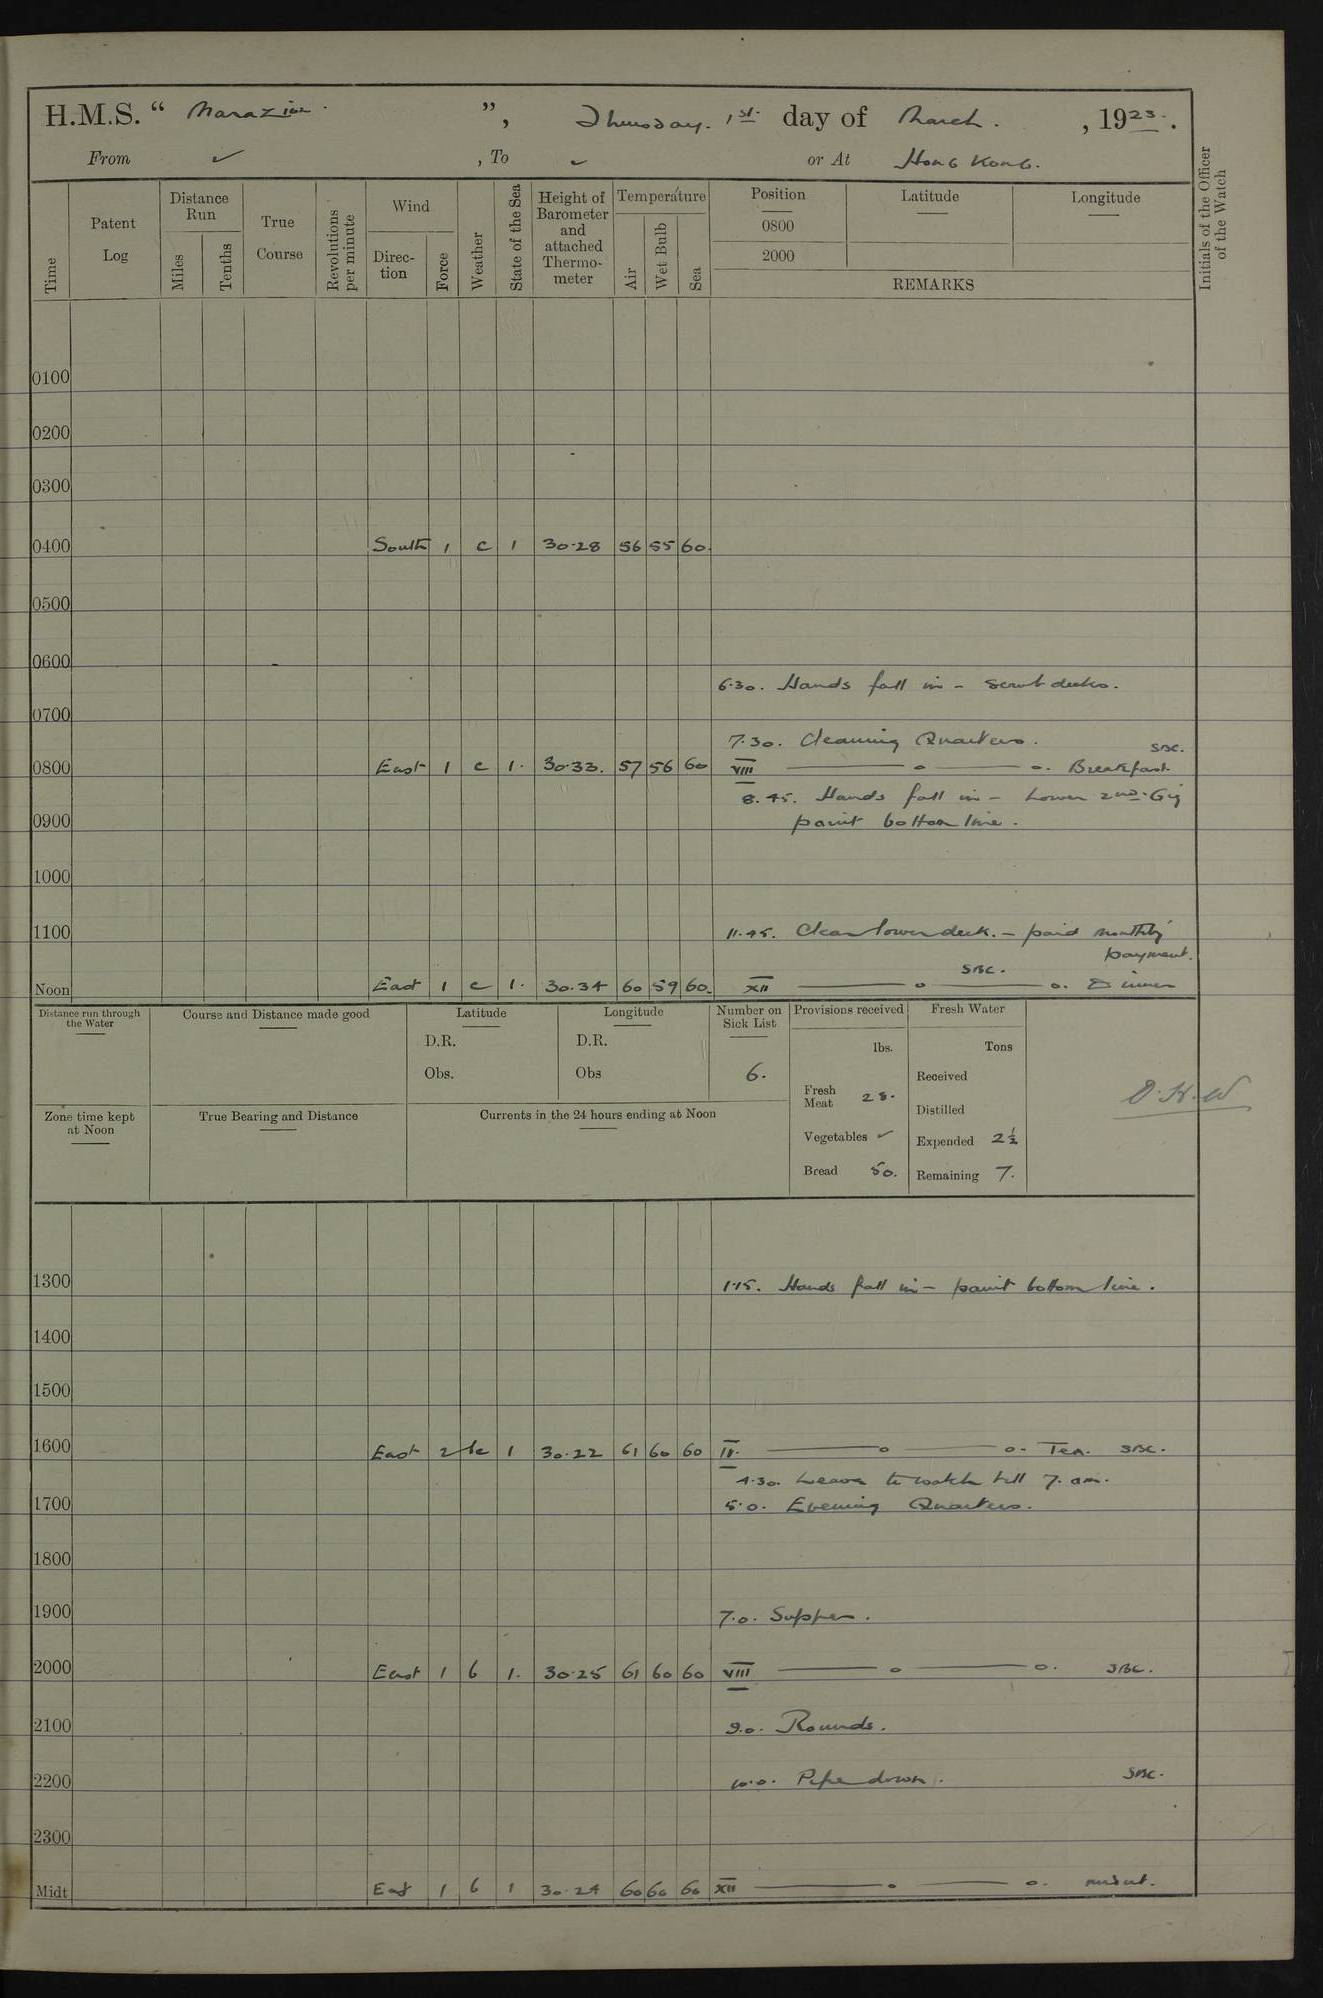 H.M.S. “ Marazion ”, Thursday. 1st. day of March. , 1923.
From ✓ , To ✓ or At Hong Kong.
Time
Patent Log
Distance Run
Miles
Tenths
True Course
Revolutions per minute
Wind
Direction
Force
Weather
State of the Sea
Height of Barometer and attached Thermometer
Temperature
Air
Wet Bulb
Sea
Position
0800
2000
Latitude
Longitude
REMARKS
Initials of the Officer of the Watch
0100
0200
0300
0400 South 1 c 1 30.28 56 55 60.
0500
0600
6.30. Hands fall in – scrub decks.
0700
7.30. Cleaning Quarters. SBC.
0800 East 1 c 1. 30.33. 57 56 60 VIII —— o —— o. Breakfast.
8.45. Hands fall in – Lower 2nd. Gig
0900 paint bottom line.
1000
1100 11.45. Clear lower deck. – paid monthly
payment.
SBC.
Noon East 1 c 1. 30.34 60 59 60. XII —— o —— o. Dinner
Distance run through the Water
Course and Distance made good
Latitude
D.R.
Obs.
Longitude
D.R.
Obs
Number on Sick List
6.
Provisions received
lbs.
Fresh Meat 28.
Vegetables ✓
Bread 50.
Fresh Water
Tons
Received
Distilled
Expended 2½
Remaining 7.
D.H.W
Zone time kept at Noon
True Bearing and Distance
Currents in the 24 hours ending at Noon
1300 1.15. Hands fall in – paint bottom line.
1400
1500
1600 East 2 bc 1 30.22 61 60 60 IV. —— o —— o. Tea. SBC.
4.30. Leave to watch till 7. am.
1700 5.0. Evening Quarters.
1800
1900 7.0. Supper.
2000 East 1 b 1. 30.25 61 60 60 VIII —— o —— o. SBC.
2100 9.0. Rounds.
2200 10.0. Pipe down. SBC.
2300
Midt East 1 b 1 30.24 60 60 60 XII —— o —— o.